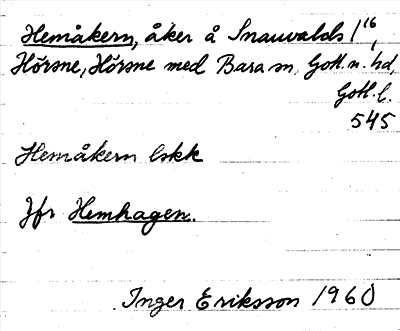 Hemåkern, åker å Snauvalds 1¹⁶,
Hörsne, Hörsne med Bara sn, Gotl. n. hd,
Gotl. l.
545
Hemåkern lskk
Jfr Hemhagen.
Inger Eriksson 1960